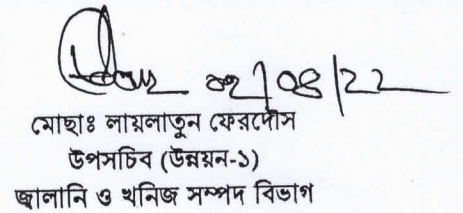 ০২/০৪/২২
মোছাঃ লায়লাতুন ফেরদৌস
উপসচিব (উন্নয়ন-১)
জ্বালানি ও খনিজ সম্পদ বিভাগ